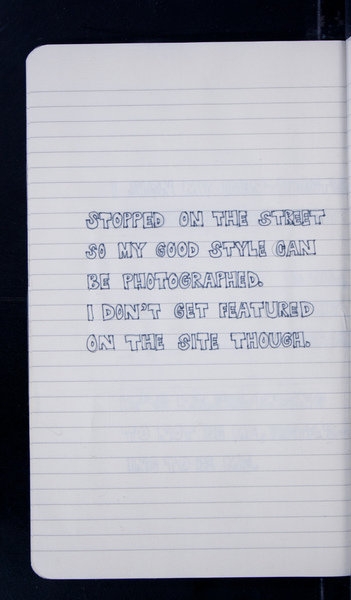 STOPPED ON THE STREET
SO MY GOOD STYLE CAN
BE PHOTOGRAPHED.
I DON'T GET FEATURED
ON THE SITE THOUGH.